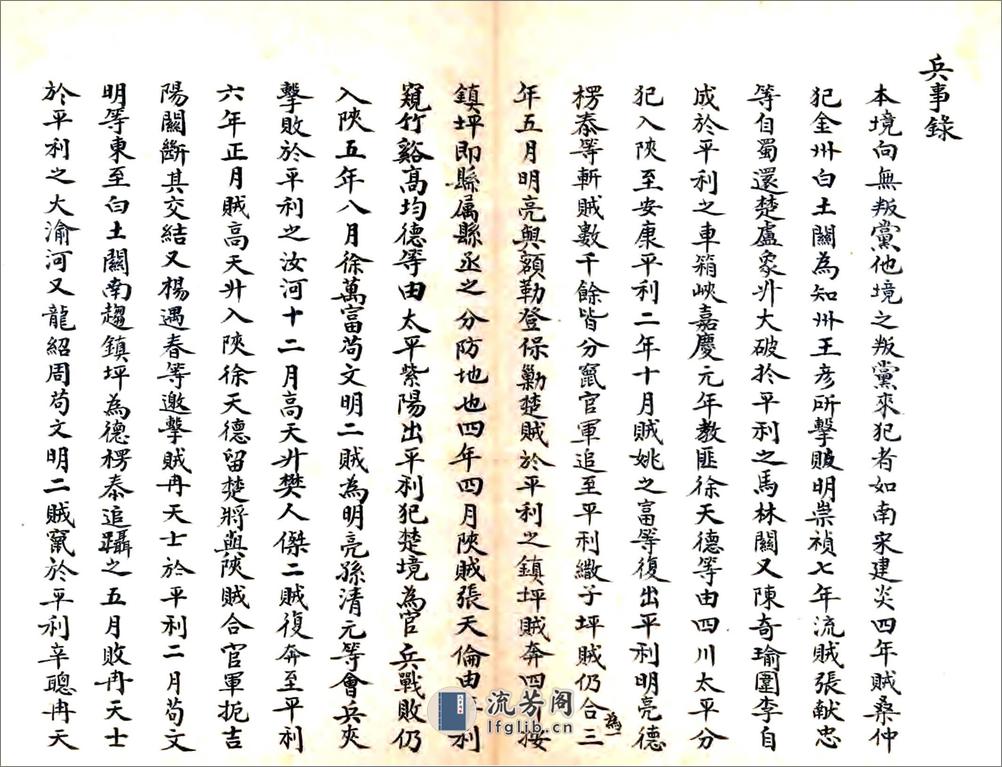 兵事錄
本境向無叛黨他境之叛黨來犯者如南宋建炎四年賊桑仲
犯金州白土關為知州王彥所擊敗明崇禎七年流賊張献忠
等自蜀還楚盧象升大破於平利之馬林關又陳奇瑜圍李自
成於平利之車箱峽嘉慶元年教匪徐天德等由四川太平分
犯入陝至安康平利二年十月賊姚之富等復出平利明亮德
楞泰等斬賊數千餘皆分竄官軍追至平利繖子坪賊仍合三
為
年五月明亮與額勒登保勦楚賊於平利之鎮坪賊奔四川按
鎮坪即縣属縣丞之分防地也四年四月陝賊張天倫由平利
窺竹谿高均德等由太平紫陽出平利犯楚境為官兵戰敗仍
入陝五年八月徐萬富茍文明二賊為明亮孫清元等會兵夾
擊敗於平利之汝河十二月高天升樊人傑二賊復奔至平利
六年正月賊高天升入陝徐天德留楚將與陝賊合官軍扼吉
陽關斷其交結又楊遇春等邀擊賊冉天士於平利二月茍文
明等東至白土關南趨鎮坪為德楞泰追躡之五月敗冉天士
於平利之大渝河又龍紹周茍文明二賊竄於平利辛聰冉天
流芳阁
lfglib.cn